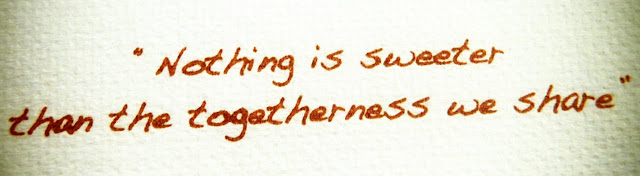 "Nothing is sweeter
than the togetherness we share"